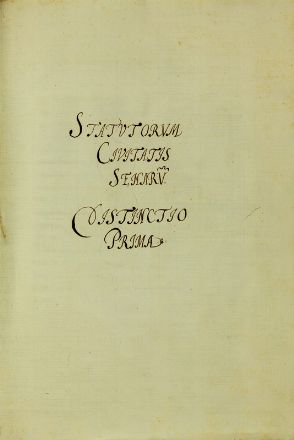 STATVTORVM
CIVITATIS
SENARV̄
DISTINCTIO
PRIMA